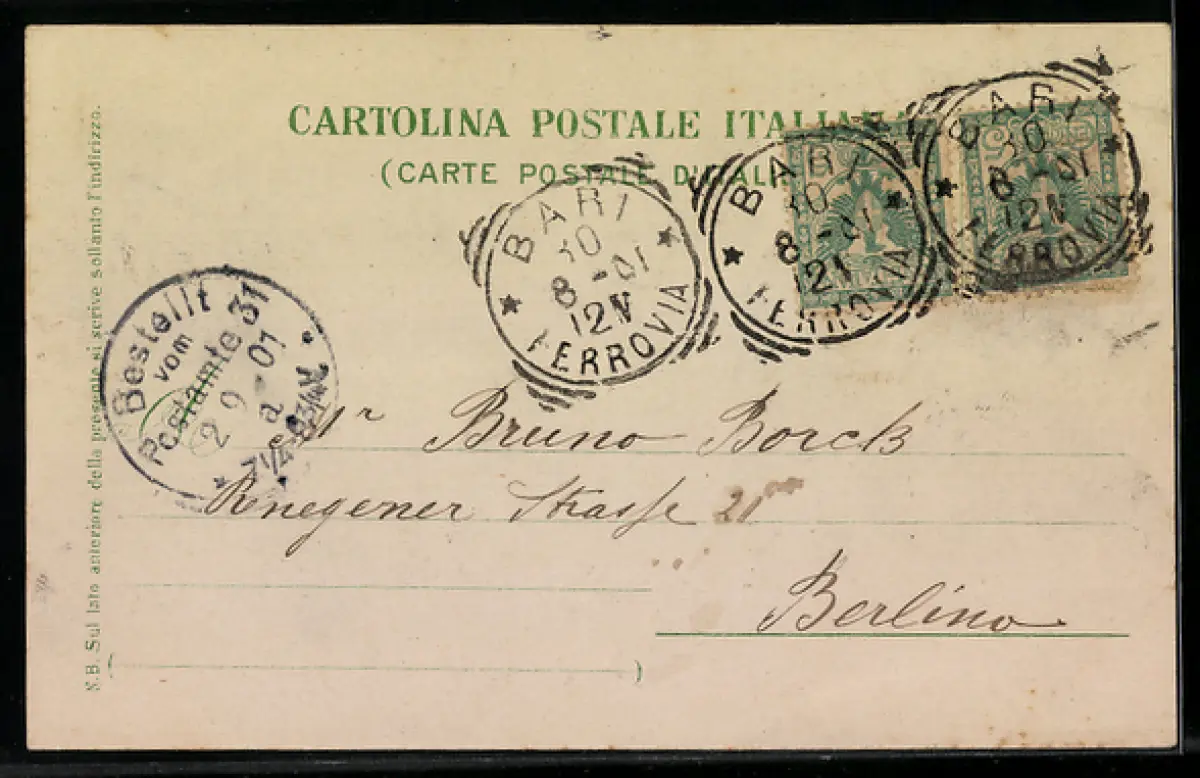 CARTOLINA POSTALE ITALIANA
(CARTE POSTALE D'ITALIE)
BARI
30
8-01
12N
FERROVIA
BARI
30
8-01
121
FERROVIA
BARI
30
8-01
12N
FERROVIA
Bestellt
vom
Postamte 31
2 9 01
a
7 1/4-8 3/4 V.
N.B. Sul lato anteriore della presente si scrive soltanto l'indirizzo.
Mr Bruno Borck
Strasse 21
Berlino